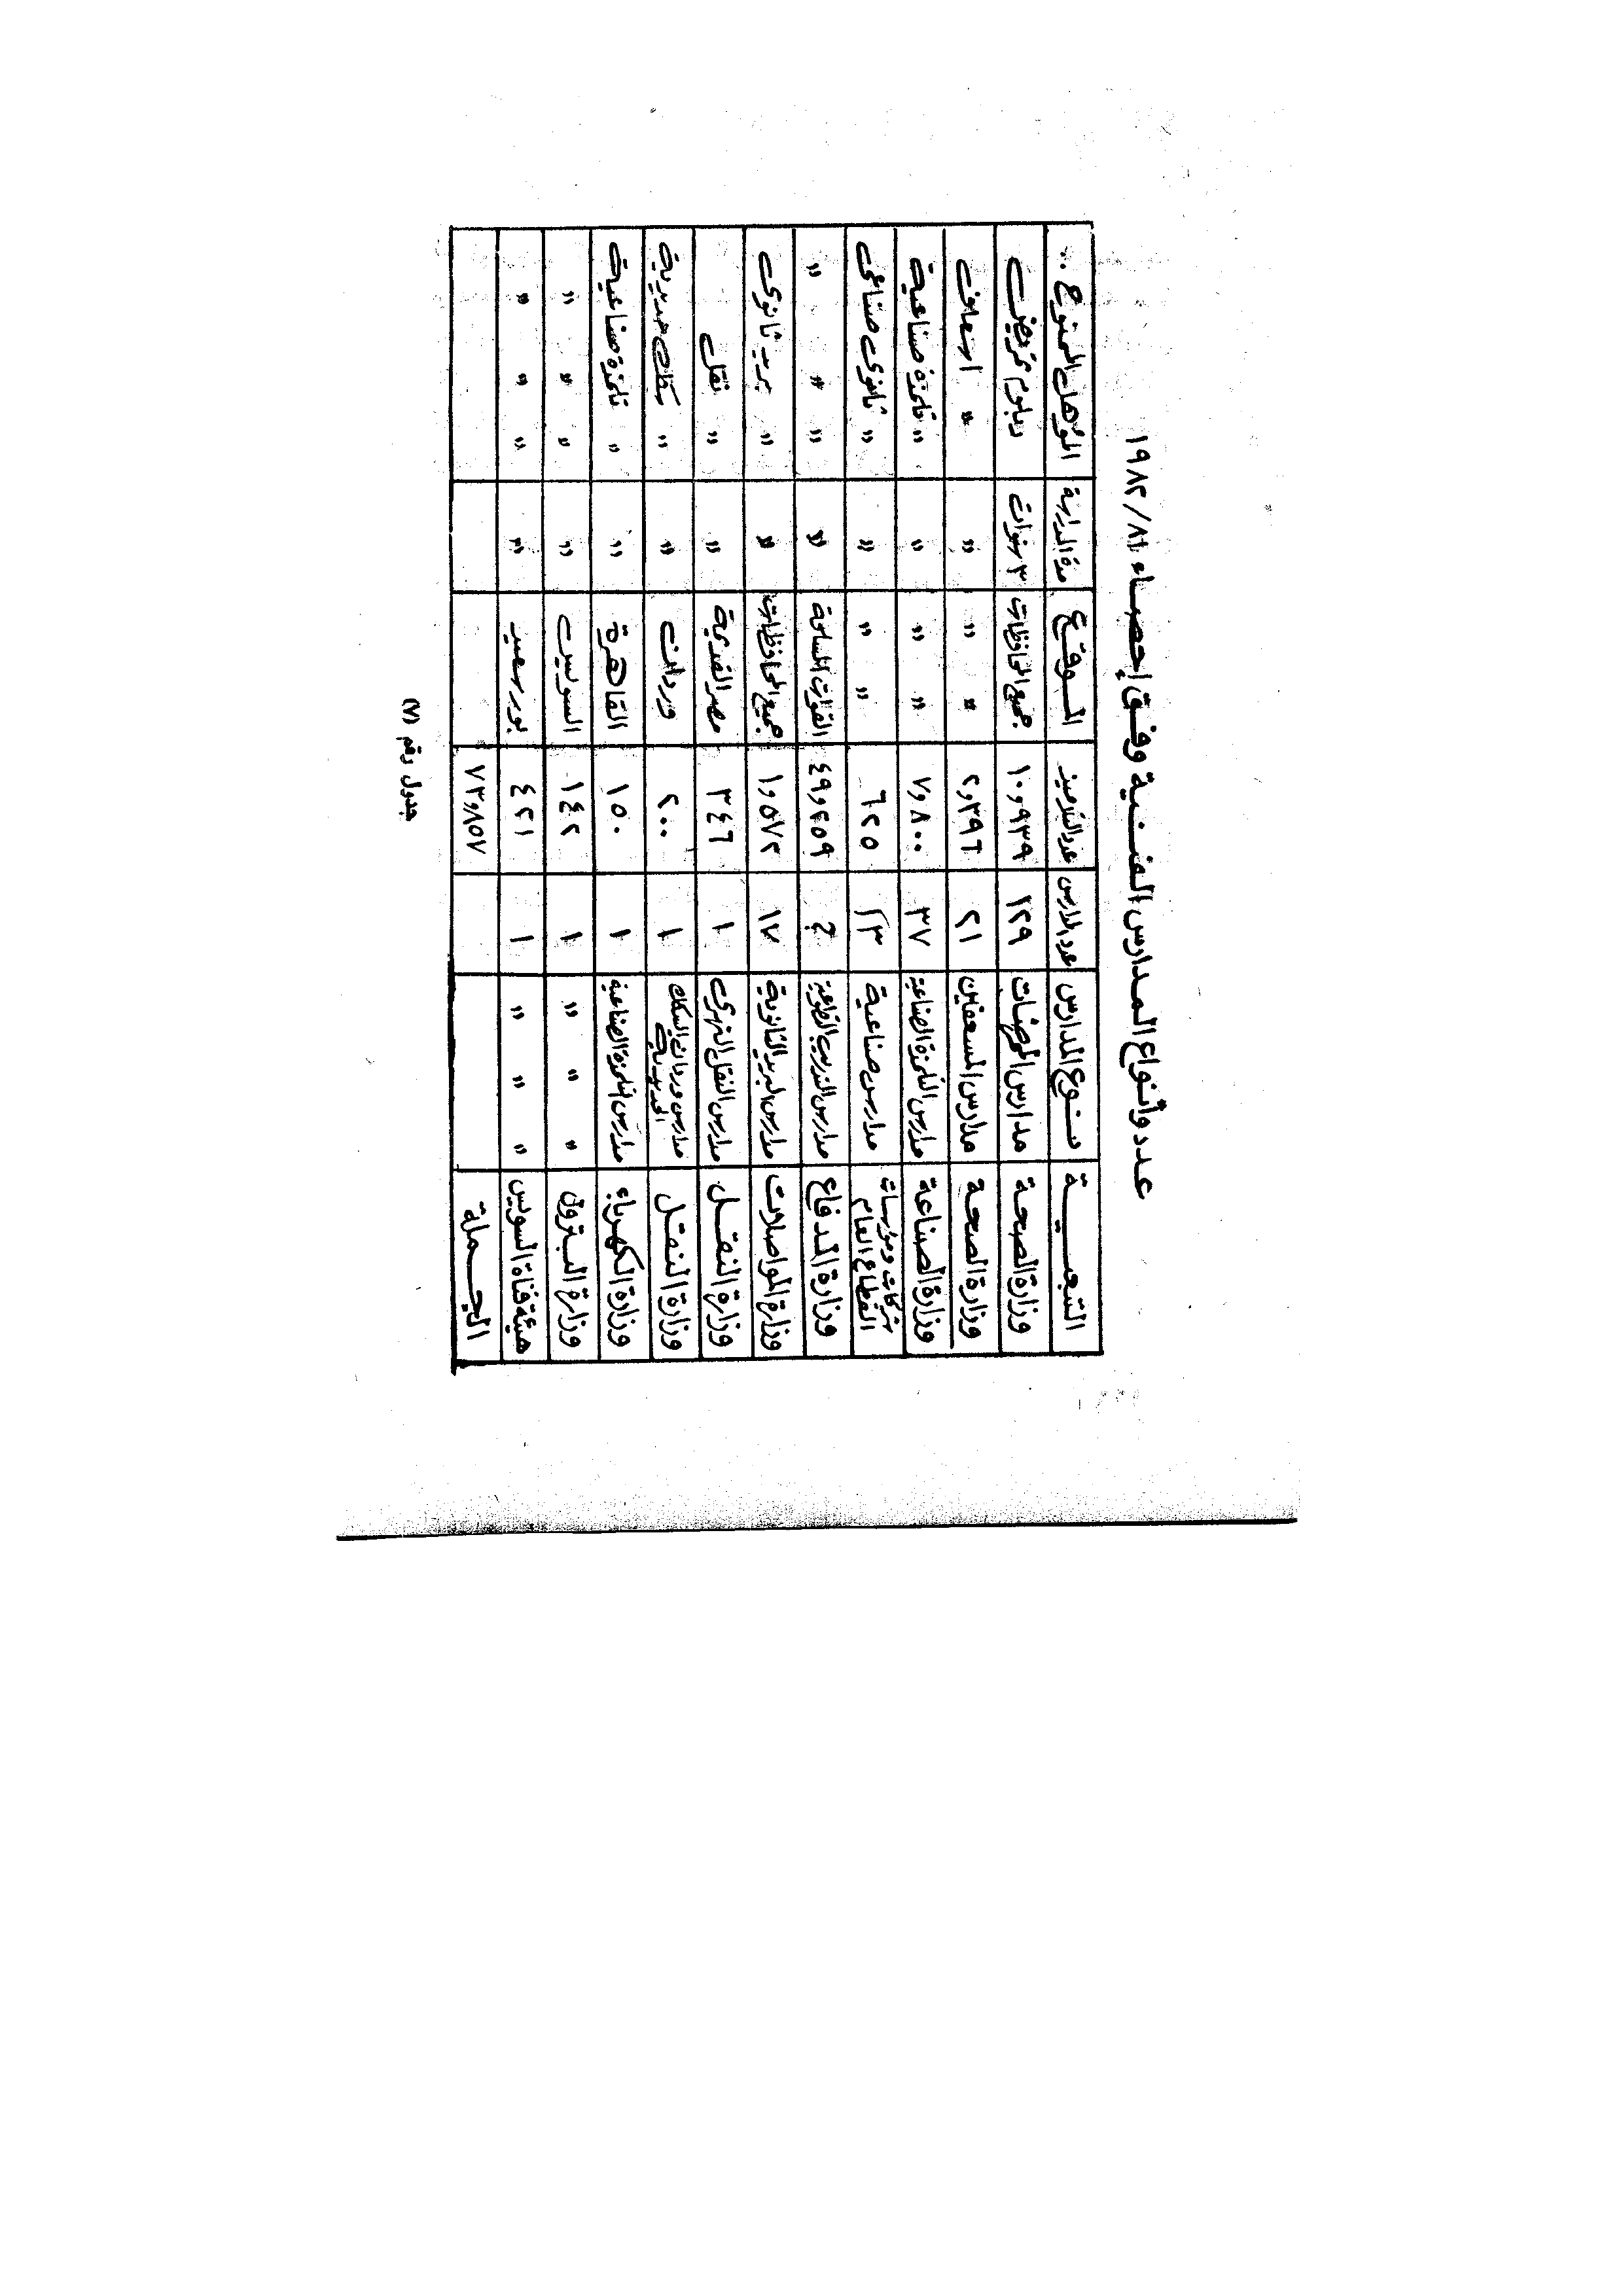 عدد وأنواع المدارس الفنية وفق إحصاء ١٩٨٢/٨١
التبعية نوع المدارس عدد المدارس عدد التلاميذ الموقع مدة الدراسة المؤهل الممنوح ..
وزارة الصحة مدارس الممرضات ١٢٩ ١٠,٩٣٩ جميع المحافظات ٣ سنوات دبلوم تمريض
وزارة الصحة مدارس المسعفين ٢١ ٢,٣٩٦ " " " " اسعاف
وزارة الصناعة مدارس التلمذة الصناعية ٣٧ ٧,٨٠٠ " " " " تلمذة صناعية
شركات ومؤسسات القطاع العام مدارس صناعية ١٣ ٦٢٥ " " " " ثانوى صناعى
وزارة الدفاع مدارس التدريب المتطوعة ? ٤٩,٢٥٩ القوات المسلحة " " " "
وزارة المواصلات مدارس البريد الثانوية ١٧ ١,٥٧٢ جميع المحافظات " " بريد ثانوى
وزارة النقل مدارس النقل النهرى ١ ٣٤٦ مصر القديمة " " نقل
وزارة النقل مدارس وردان السكك الحديدية ١ ٢٠٠ وردان " " سكك حديدية
وزارة الكهرباء مدارس التلمذة الصناعية ١ ١٥٠ القاهرة " " تلمذة صناعية
وزارة البترول " " " ١ ١٤٢ السويس " " " "
هيئة قناة السويس " " " ١ ٤٢١ بورسعيد " " " "
الجملة ٧٣,٨٥٧
جدول رقم (٧)